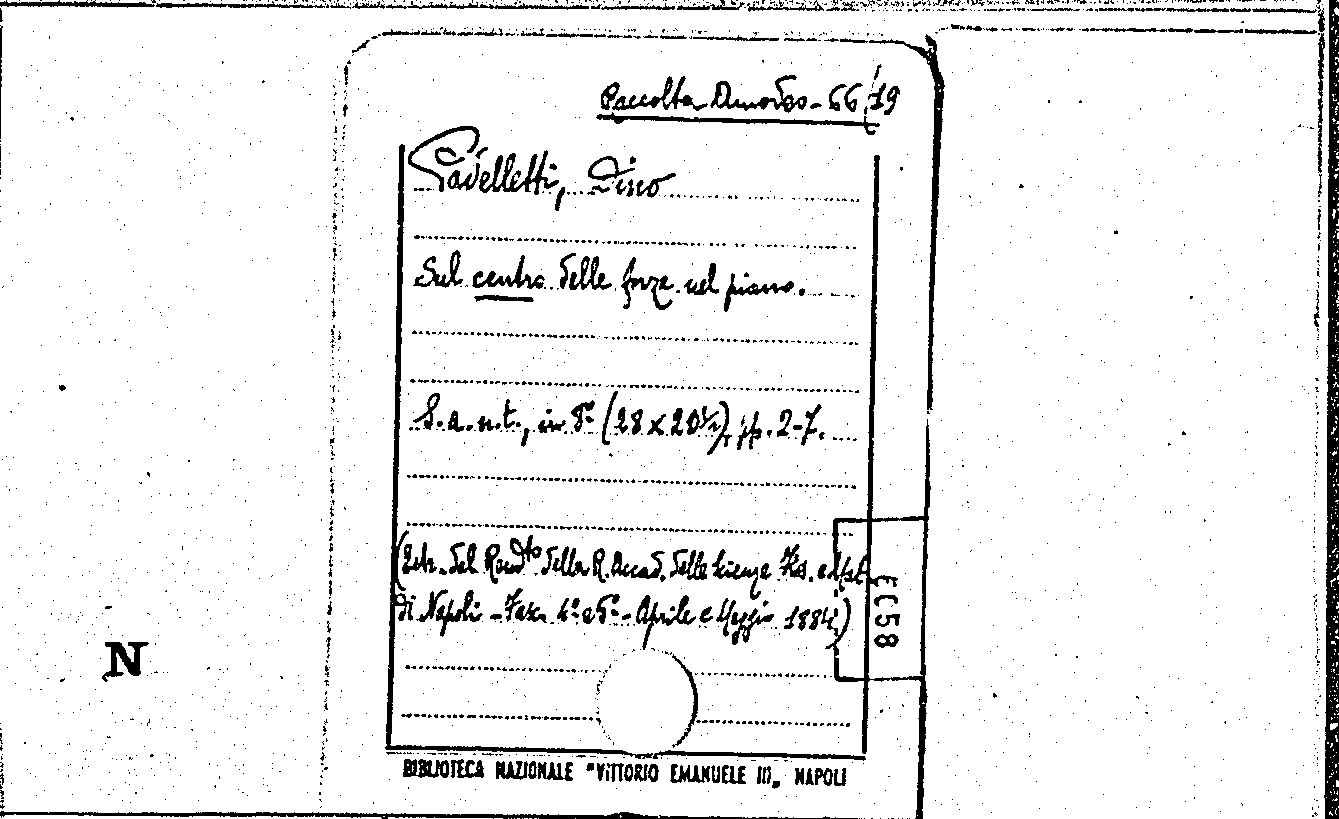 Raccolta Amodeo - 66/19
Padelletti, Dino
Sul centro delle forze nel piano.
S. a. n. t., in 8° (28 x 20½), pp. 2-7.
(Estr. dal Rendto della R. Accad. delle Scienze Fis. e Mat.
di Napoli - Fasc. 4° e 5° - Aprile e Maggio 1884)
58
N
BIBLIOTECA NAZIONALE "VITTORIO EMANUELE III„ NAPOLI